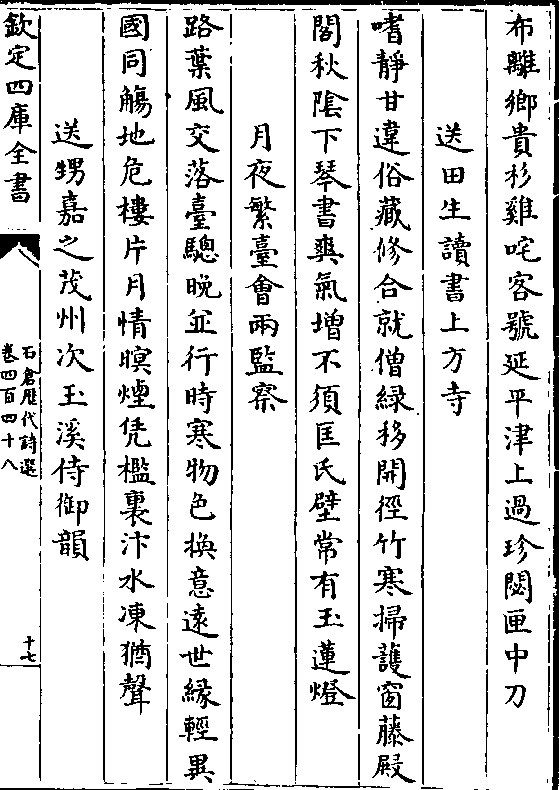 布離鄉貴衫雞咤客號延平津上過珍閟匣中刀
送田生讀書上方寺
嗜靜甘違俗藏修合就僧緑移開徑竹寒掃護窗藤殿
閣秋陰下琴書爽氣增不須匡氏壁常有玉蓮燈
月夜繁臺會兩監察
路葉風交落臺驄晚並行時寒物色換意遠世緣輕異
國同觴地危樓片月情暝煙凭檻裏汴水凍猶聲
送甥嘉之茂州次玉溪侍御韻
欽定四庫全書
石倉歷代詩選
卷四百四十八
十七